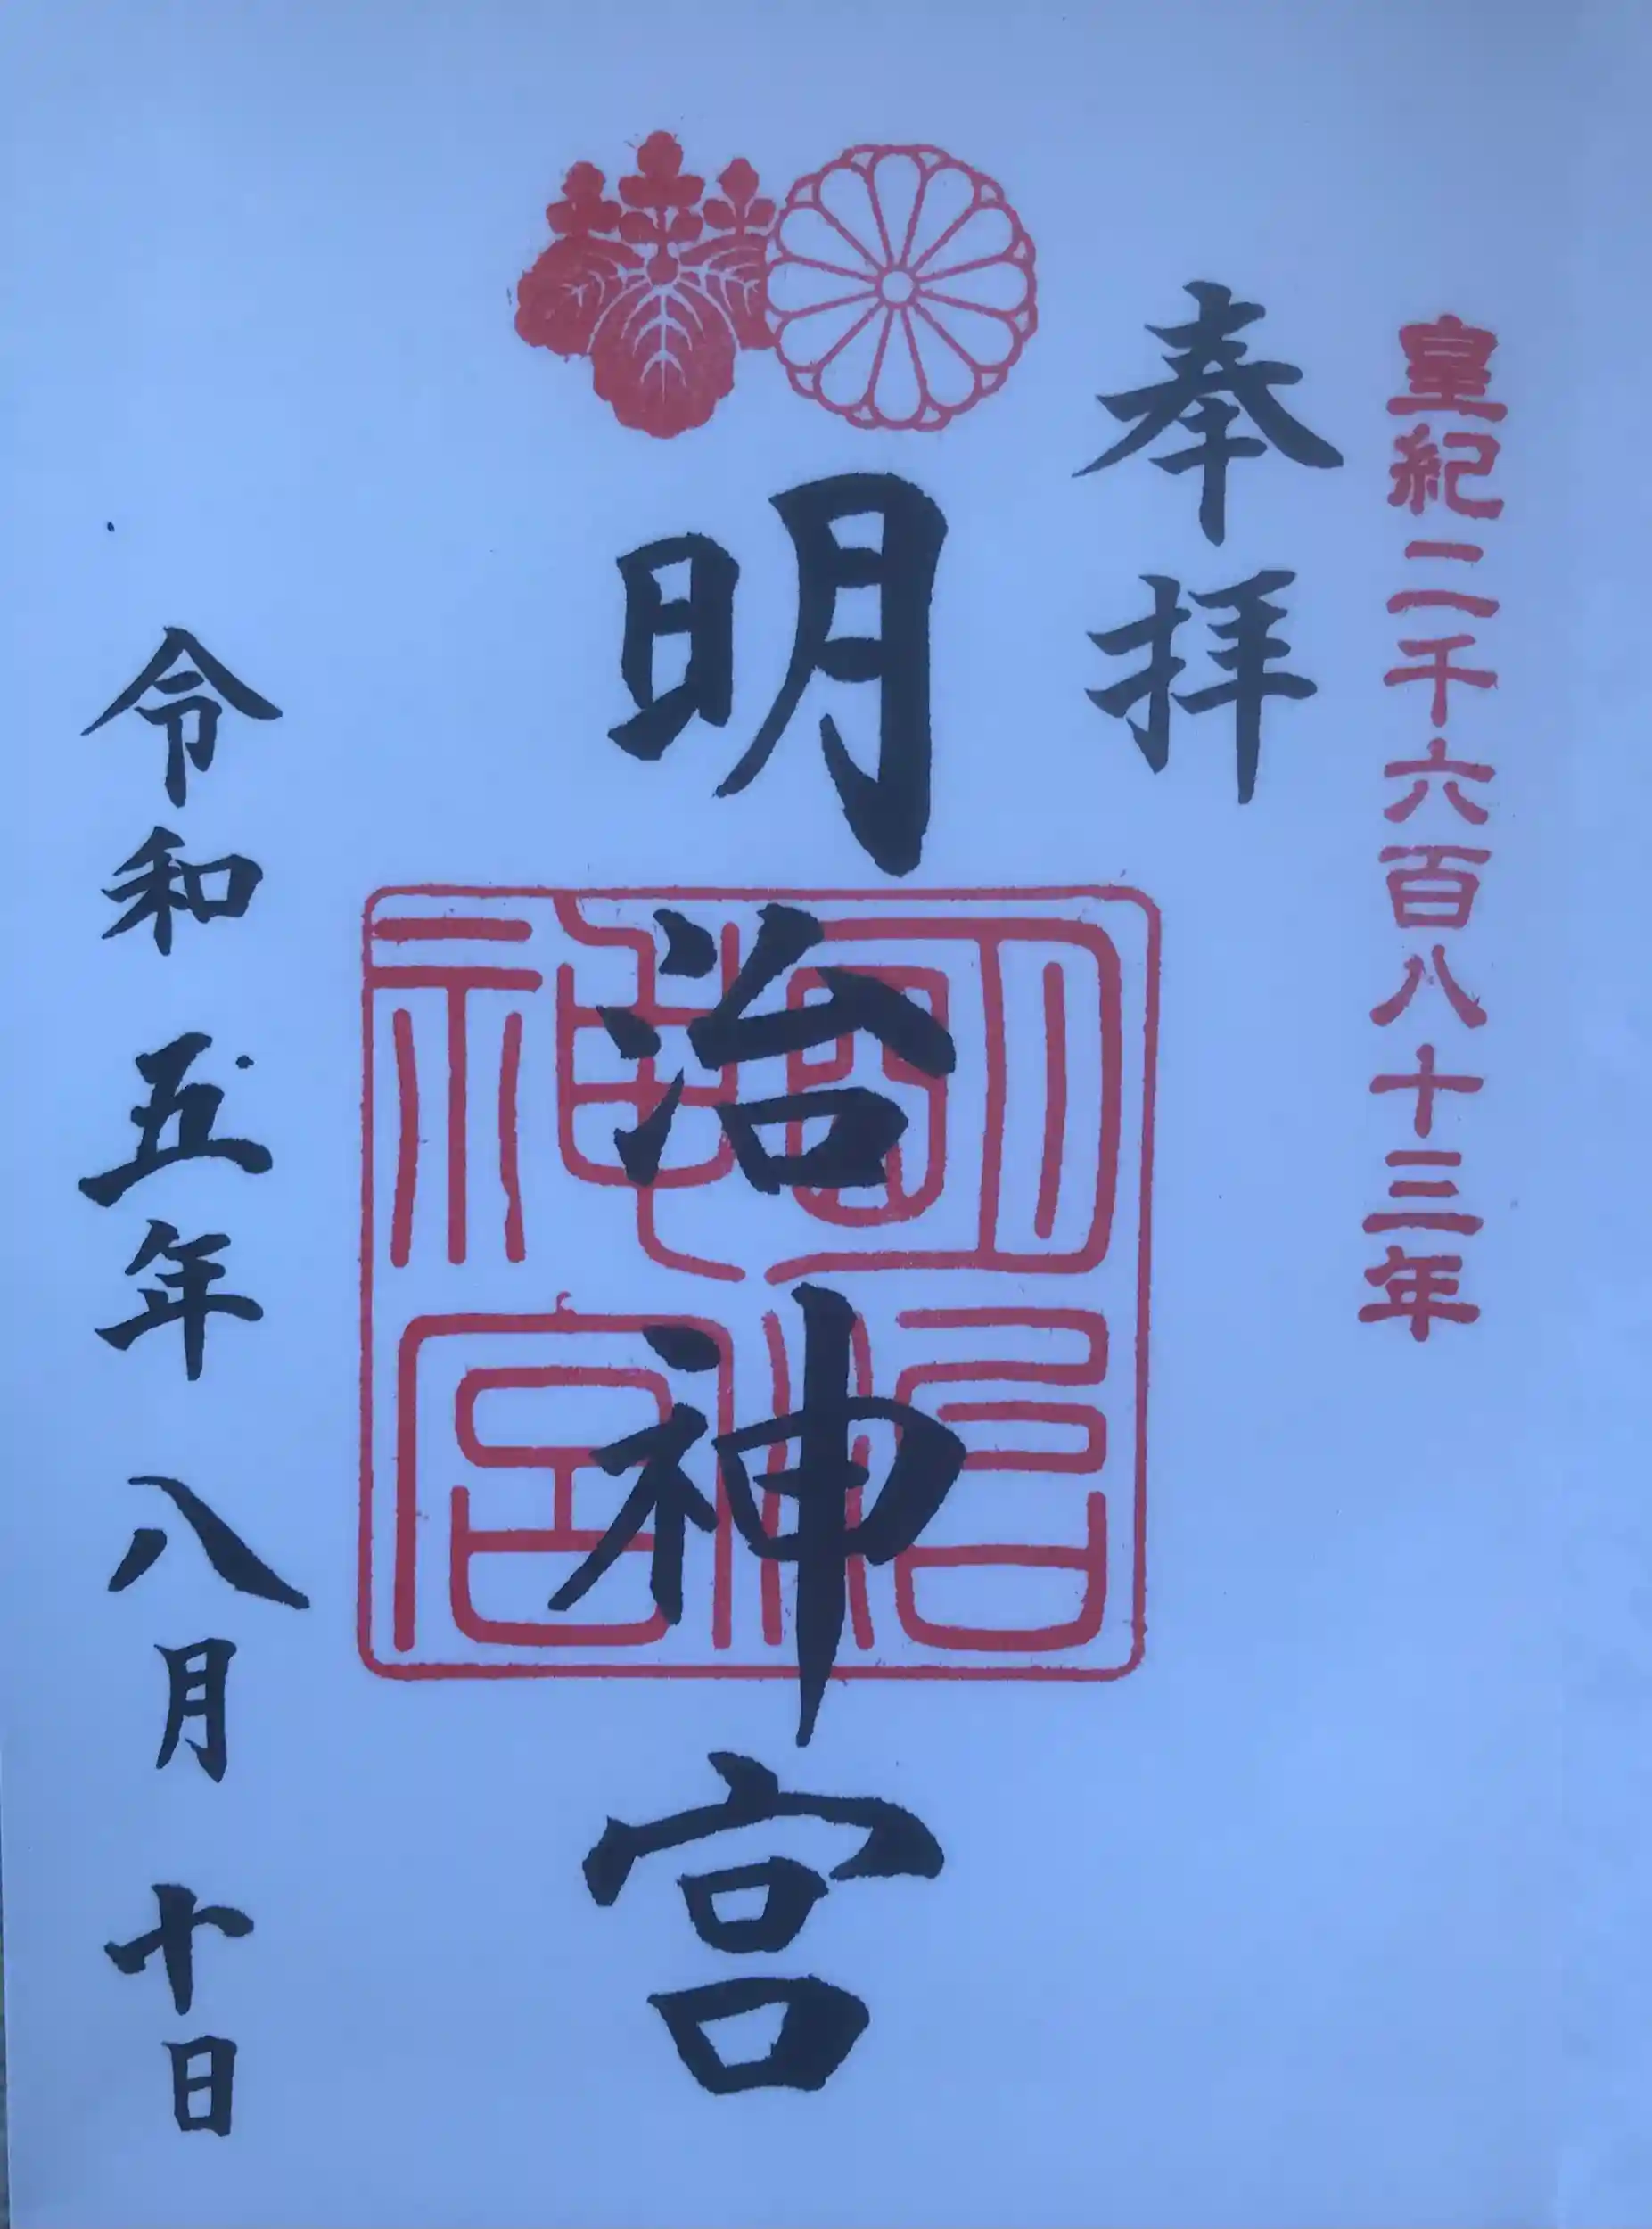 皇紀二千六百八十三年
奉拝
明治神宮
明治神宮
令和五年八月十日